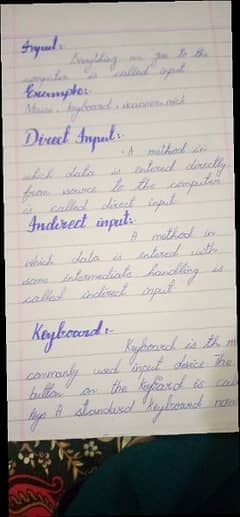 Input:-
Everything we give to the
computer is called input
Example:-
Mouse, keyboard, scanner, mick
Direct Input:-
A method in
which data is entered directly
from source to the computer
is called direct input
Indirect input:-
A method in
which data is entered with
some intermediate handling is
called indirect input
Keyboard:-
Keyboard is the m
commonly used input device The
button on the keyboard is cal
keys A standard keyboard